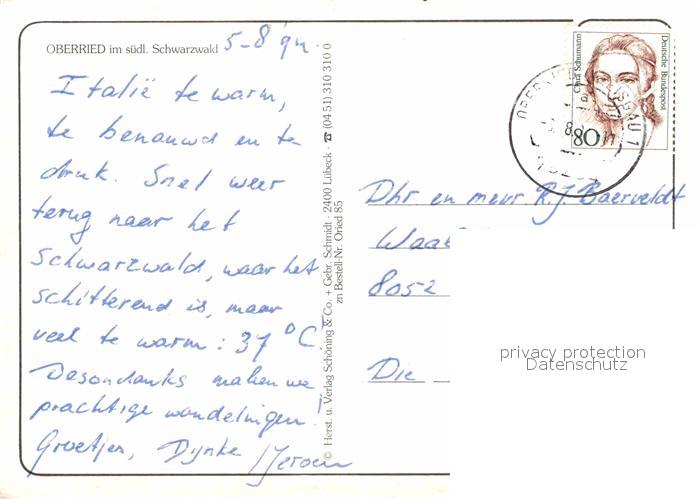 OBERRIED im südl. Schwarzwald 5-8
Italië te warm,
te benauwd en te
druk. Snel weer
terug naar het
Schwarzwald, waar het
schitterend is, maar
veel te warm: 37 °C!
Desondanks maken we
prachtige wandelingen!
Groetjes, Dijnke / Jeroen
© Herst. u. Verlag Schöning & Co. + Gebr. Schmidt · 2400 Lübeck · ☎ (04 51) 310 310 0
zn Bestell-Nr. Oried 85
Clara Schumann
Deutsche Bundespost
80
Dhr en mevr R.J. Baerveldt
8052
Die
privacy protection
Datenschutz